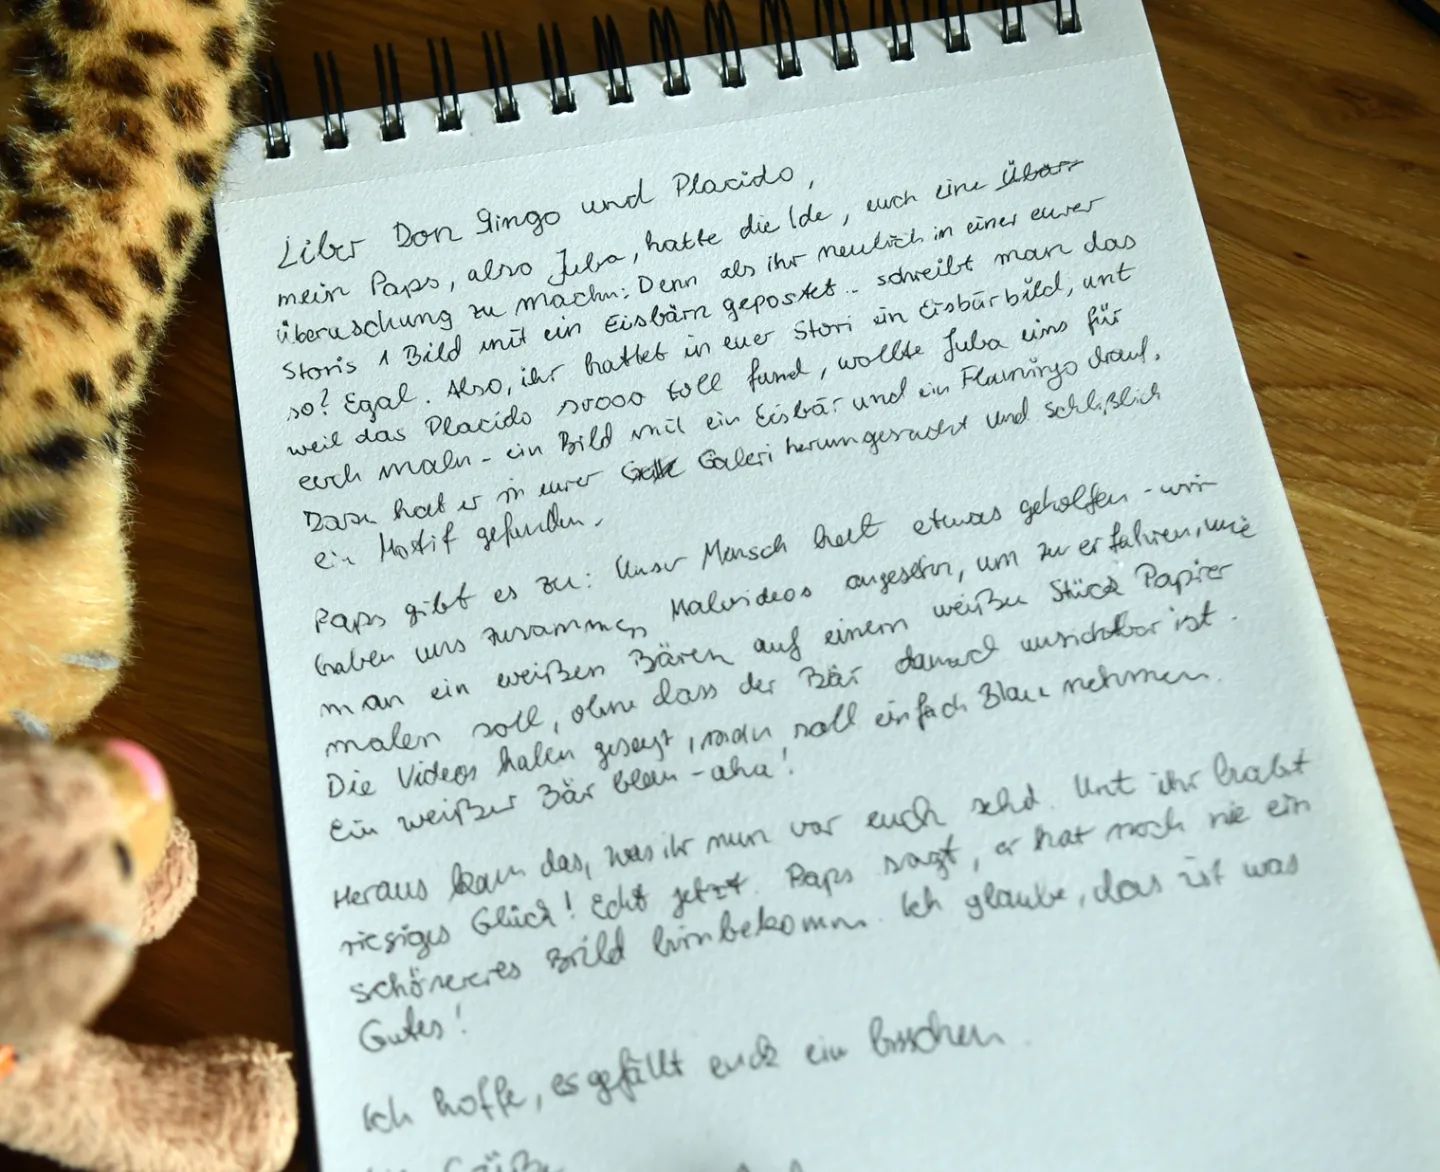 Liber Don Gingo und Placido,
mein Paps, also Juba, hatte die Ide, euch eine Übarr
überuschung zu machn: Denn als ihr neulich in einer eurer
Storis 1 Bild mit ein Eisbärn gepostet.. schreibt man das
so? Egal. Also, ihr hattet in euer Stori ein Eisbärbild, unt
weil das Placido soooo toll fand, wollte Juba eins für
euch maln - ein Bild mit ein Eisbär und ein Flamingo drauf.
Dazu hat er in eurer Galeri herumgesucht und schlißlich
ein Motif gefunden.
Paps gibt es zu: Unser Mensch hat etwas geholfen - wir
haben uns zusammen Malvideos angesehn, um zu erfahren, wie
man ein weißen Bären auf einem weißen Stück Papier
malen soll, ohne dass der Bär danach unsichtbar ist.
Die Videos haben gesagt, man soll einfach Blau nehmen.
Ein weißer Bär blau - aha!
Heraus kam das, was ihr nun vor euch sehd. Unt ihr habt
riesiges Glück! Echt jetzt. Paps sagt, er hat noch nie ein
schöneres Bild hinbekomm. Ich glaube, das ist was
Gutes!
Ich hoffe, es gefällt euch ein bisschen.